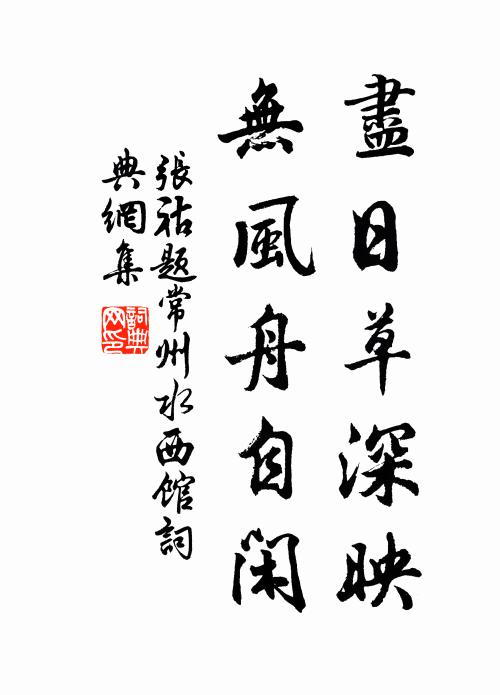 盡日草深映
無風舟自閑
張祜題常州水西館詞
典網集
詞典网印